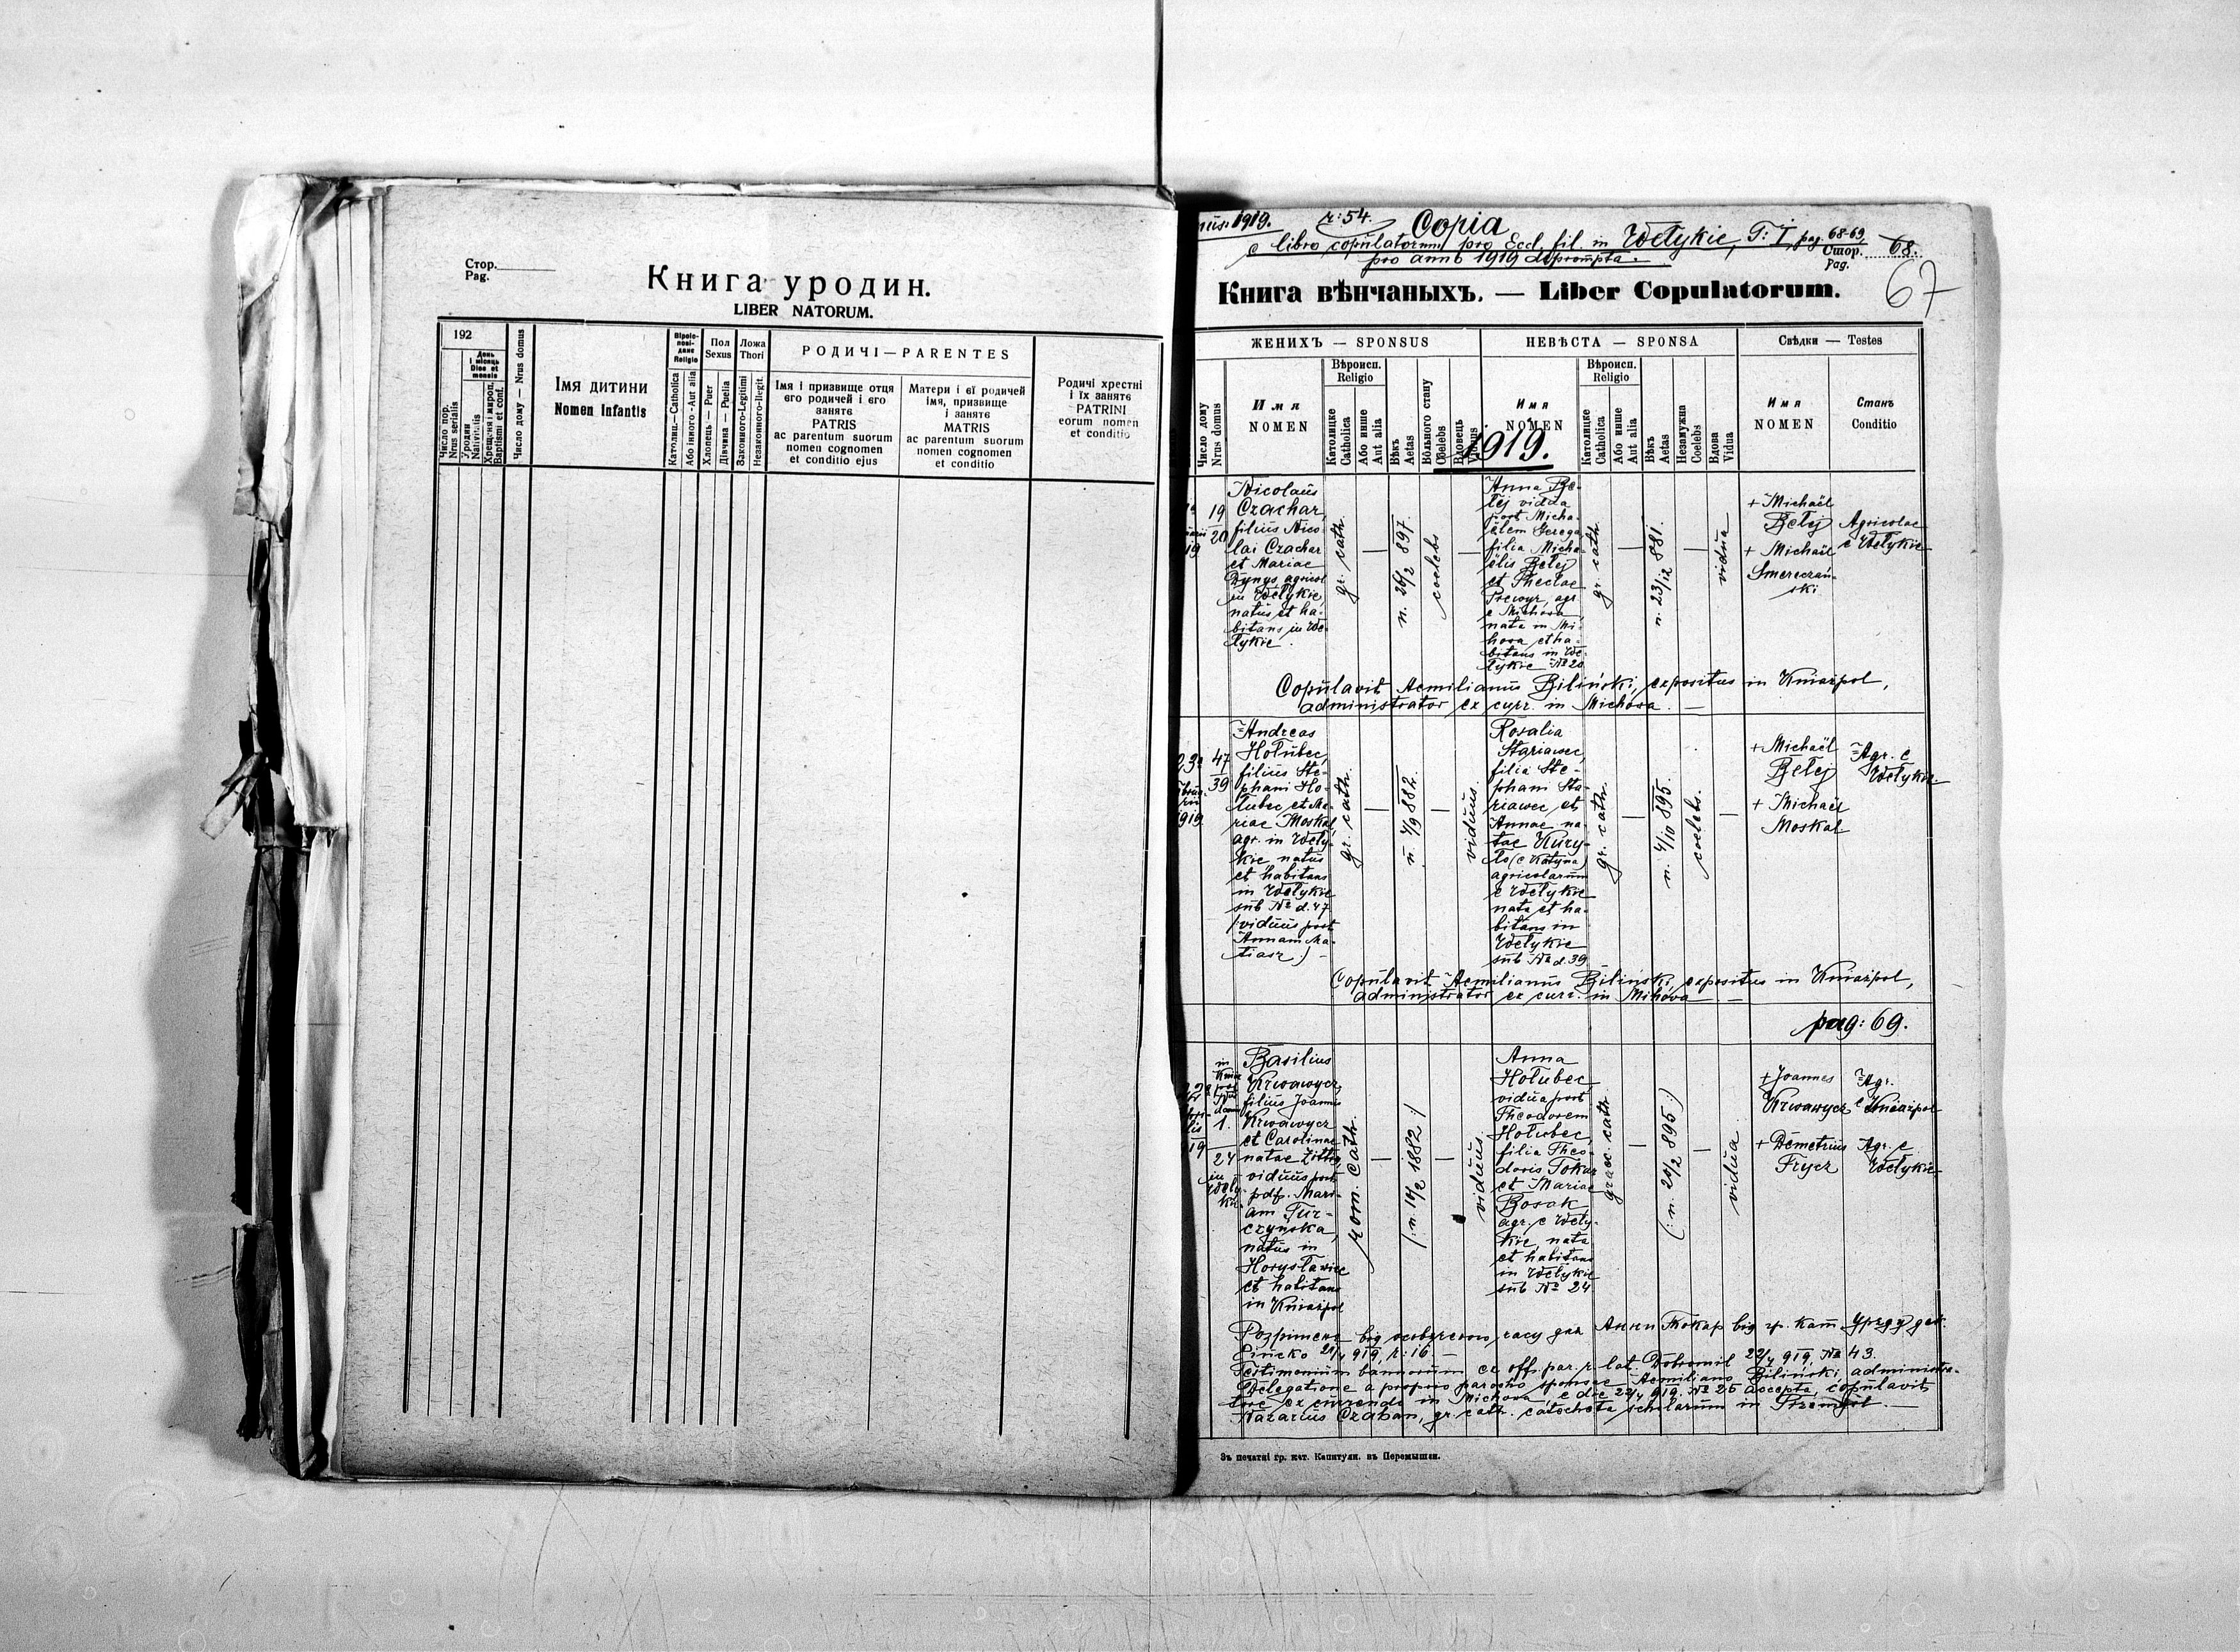 Стор.
Pag.
Книга уродин.
LIBER NATORUM.
192
День і місяць
Dies et mensis
Число пор.
Nrus serialis
Уродин
Nativitatis
Хрещеня і миров.
Baptismi et conf.
Число дому — Nrus domus
Імя дитини
Nomen Infantis
Віроіспові-
данє
Religio
Католиц.—Catholica
Або інного-Aut alia
Пол
Sexus
Хлопець — Puer
Дівчина — Puella
Ложа
Thori
Законного-Legitimi
Незаконного-Ilegit.
РОДИЧІ — PARENTES
Імя і призвище отця
єго родичей і єго
занятє
PATRIS
ac parentum suorum
nomen cognomen
et conditio ejus
Матери і єї родичей
імя, призвище
і занятє
MATRIS
ac parentum suorum
nomen cognomen
et conditio
Родичі хрестні
і їх занятє
PATRINI
eorum nomen
et conditio
1919. r: 54. Copia
e libro copulatorum pro Eccl. fil. in Wełykie, T: I, pag. 68-69
pro anno 1919 deprompta.
Стор. 68.
Pag.
67
Книга вѣнчаныхъ. — Liber Copulatorum.
ЖЕНИХЪ — SPONSUS
НЕВѢСТА — SPONSA
Свѣдки — Testes
Число дому
Nrus domus
Имя
NOMEN
Вѣроисп.
Religio
Католицке
Catholica
Або инше
Aut alia
Вѣкъ
Aetas
Вôльного стану
Coelebs
Вдовець
Viduus
Имя
NOMEN
Вѣроисп.
Religio
Католицке
Catholica
Або инше
Aut alia
Вѣкъ
Aetas
Незамужна
Coelebs
Вдова
Vidua
Имя
NOMEN
Станъ
Conditio
1919.
19
20
19
Nicolaus
Czachar,
filius Nico-
lai Czachar
et Mariae
Dynys, agricol.
in Wełykie,
natus et ha-
bitans in We-
łykie.
gr. cath.
n. 26/2 897.
coelebs
Anna Be-
łej vidua
post Micha-
ëlem Gerega
filia Micha-
ëlis Bełej
et Theclae
agr.
e Michowa
nata in Mi-
howa et ha-
bitans in We-
łykie № 20
gr. cath.
n. 23/12 881.
vidua
+ Michaël
Bełej
+ Michaël
Smereczań-
ski
Agricolae
e Wełykie
Copulavit Aemilianus Biliński, expositus in Kniażpol,
administrator ex curr. in Michowa. —
23
47
39
1919
Andreas
Hołubec,
filius Ste-
phani Ho-
łubec et Ma-
riae Moskal,
agr. in Weły-
kie natus
et habitans
in Wełykie
sub № d. 47
(viduus post
Annam Ma-
tiasz.) —
gr. cath.
n. 4/9 882.
viduus.
Rosalia
Stariawec,
filia Ste-
phani Sta-
riawec et
Annae na-
tae Kury-
ło (e Katyna)
agricolarum
e Wełykie
nata et ha-
bitans in
Wełykie
sub № d. 39
gr. cath.
n. 4/10 895.
coelebs.
+ Michaël
Bełej
+ Michaël
Moskal
Agr. e
Wełykie.
Copulavit Aemilianus Biliński, expositus in Kniażpol,
administrator ex curr. in Mihowa —
pag: 69.
19
in
1.
24
in
Weły-
kie
Basilius
Krwawycz,
filius Joannis
Krwawycz
et Carolinae
natae
viduus post
pdf. Mari-
am Tur-
czyńska,
natus in
Horysławice
et habitans
in Kniażpol
rom. cath.
(: n. 14/2 1882 :)
viduus.
Anna
Hołubec,
vidua post
Theodorem
Hołubec,
filia Theo-
doris Tokar
et Mariae
Bosak,
agr. e Weły-
kie, nata
et habitans
in Wełykie
sub № 24
graec. cath.
(: n. 20/2 895 :)
vidua
+ Joannes
Krwawycz
+ Demetrius
Frycz
Agr.
e Kniażpol
Agr. e
Wełykie
від часу для Анни Токар від гр. кат. Уряду
919, r: 16 —
Testimonium bannorum ex off. par. r. lat. Dobromil 22/4 919, № 43.
Delegatione a proprio parocho sponsae Aemiliano Biliński, administra-
tore ex currendo in Michowa, e die 22/4 919, № 25 accepta, copulavit
Nazarius Czaban, gr. cath. catecheta scholarum in
Зъ печатні гр. кат. Капитули. въ Перемышли.